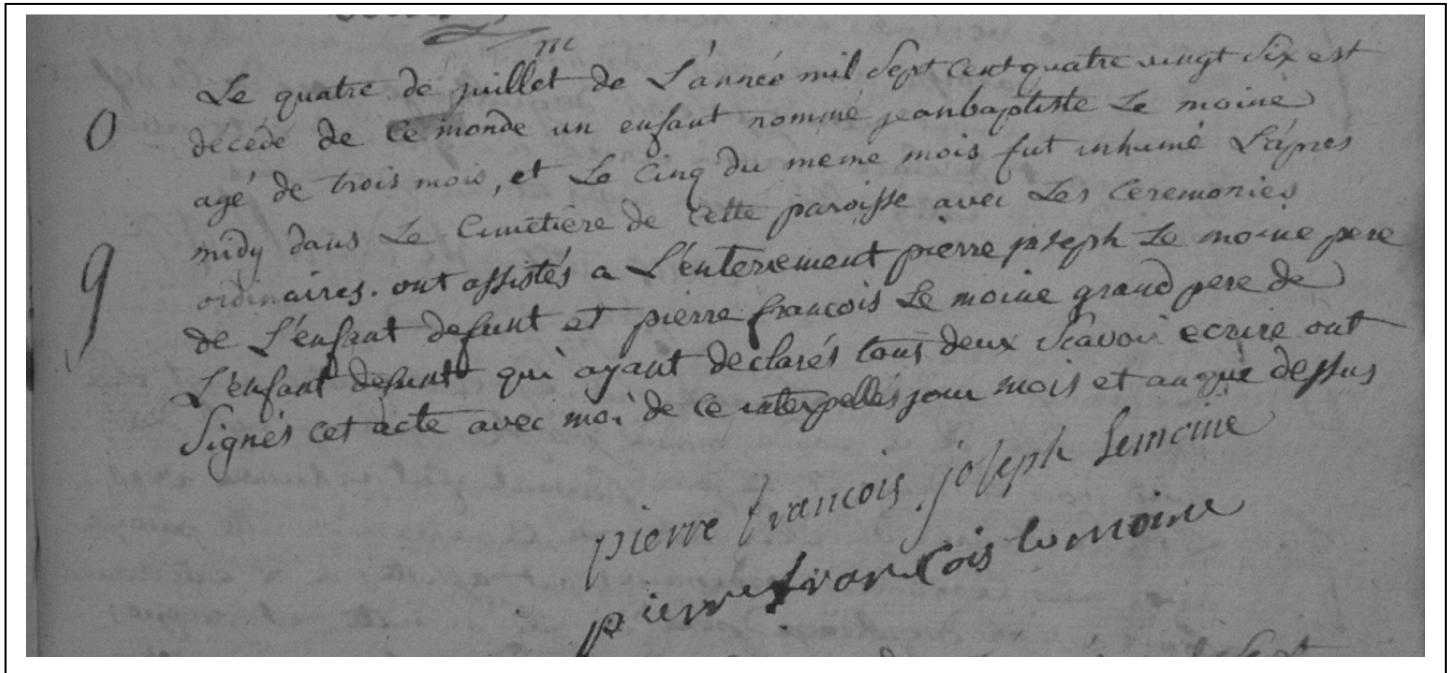 m
Le quatre de juillet de L'année mil sept cent quatre vingt six est
0 décédé de ce monde un enfant nommé jeanbaptiste Le moine
agé de trois mois, et Le cinq du meme mois fut inhumé L'apres
midy dans Le Cimetière de cette paroisse avec Les Ceremonies
9 ordinaires. ont assistés a L'enterrement pierre joseph Le moine pere
de L'enfant defunt et pierre françois Le moine grand pere de
L'enfant defunt qui ayant declarés tous deux scavoir ecrire ont
Signés cet acte avec moi de ce interpellés jour mois et an que dessus
pierre francois joseph Lemoine
pierre francois le moine